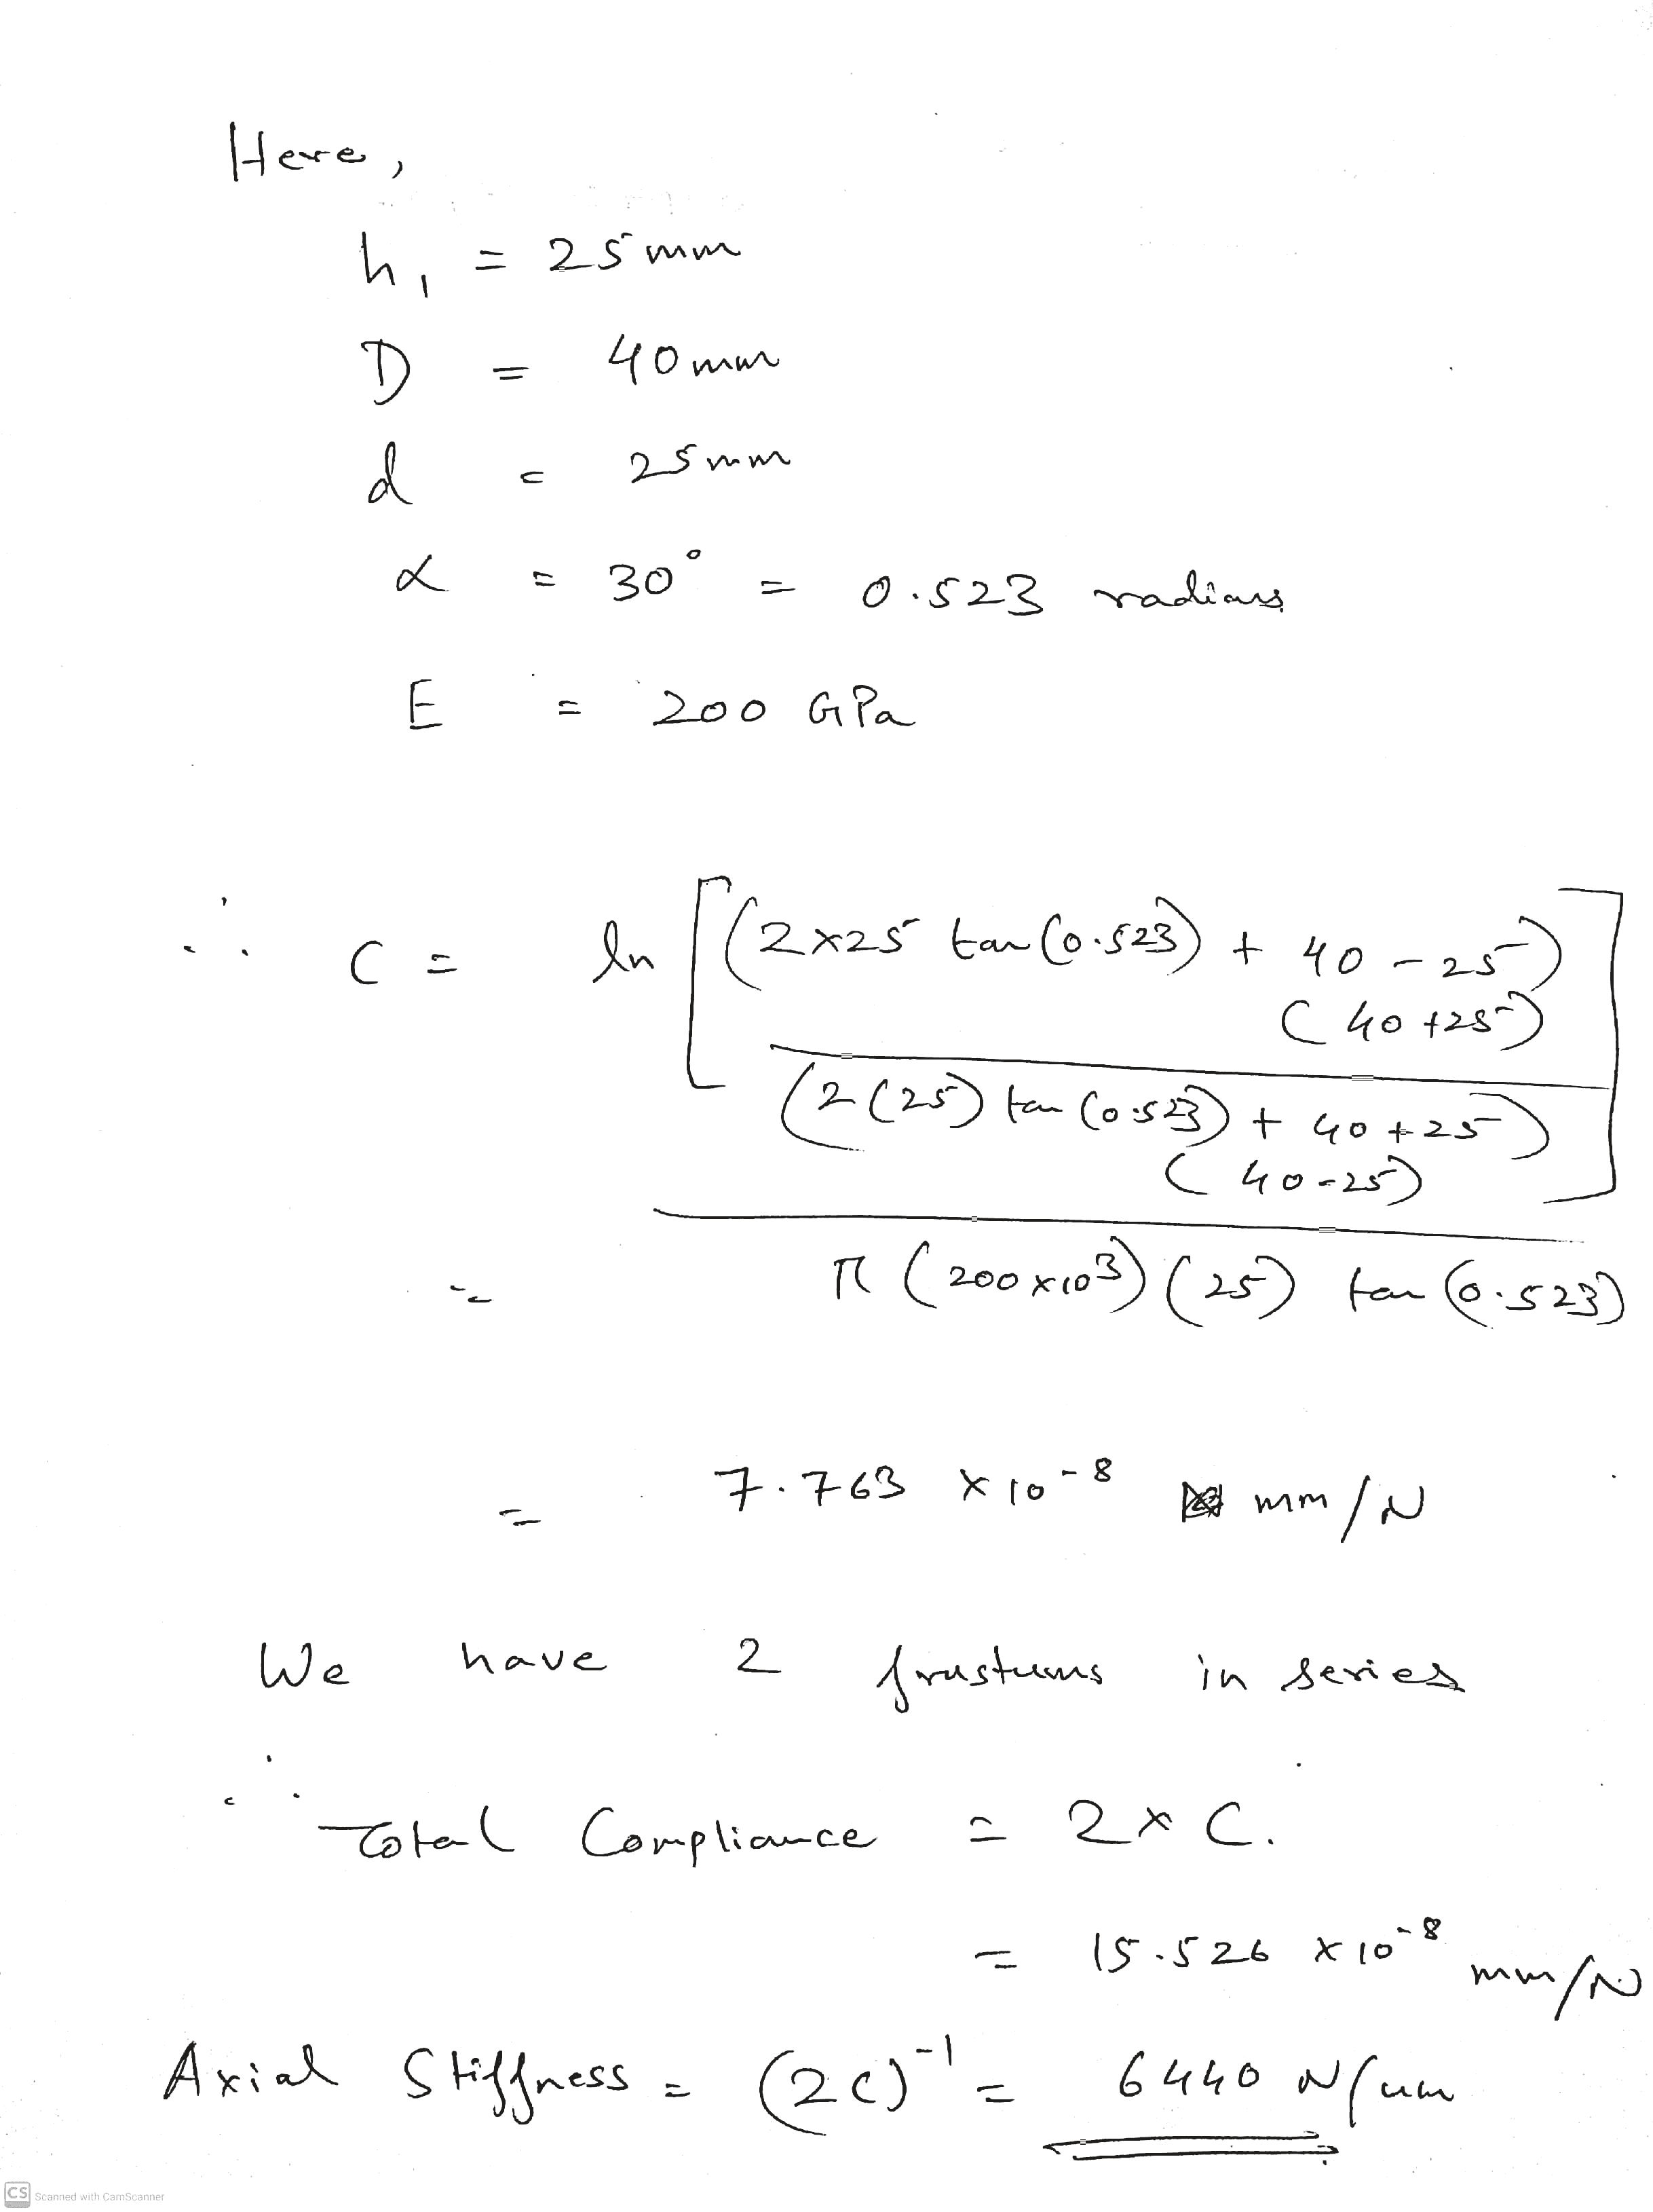 Here,
h₁ = 25 mm
D = 40 mm
d = 25 mm
α = 30° = 0.523 radians
E = 200 GPa
∴ C = ln [(2×25 tan (0.523) + 40 - 25)
(40 +25)
(2 (25) tan (0.523) + 40 + 25)
(40-25)]
= π (200 x10³) (25) tan (0.523)
= 7.763 x 10⁻⁸ mm/N
We have 2 frustums in series
∴ Total Compliance = 2 x C.
= 15.526 x 10⁻⁸ mm/N
Axial Stiffness = (2C)⁻¹ = 6440 N/um
CS Scanned with CamScanner